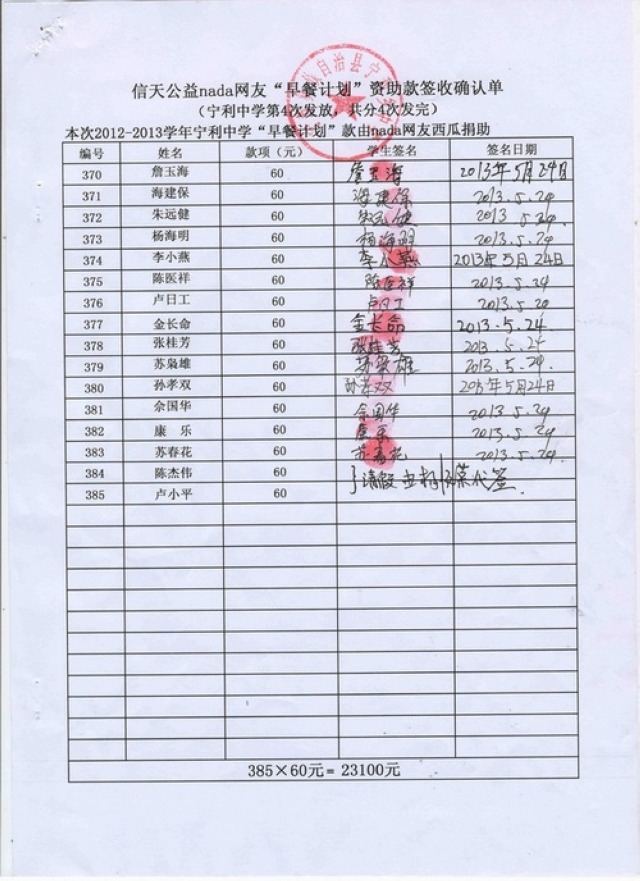 信天公益nada网友“早餐计划”资助款签收确认单
（宁利中学第4次发放，共分4次发完）
本次2012-2013学年宁利中学“早餐计划”款由nada网友西瓜捐助
编号 姓名 款项（元） 学生签名 签名日期
370 詹玉海 60 詹玉海 2013年5月24日
371 海建保 60 海建保 2013.5.24
372 朱远健 60 朱远健 2013 5.24
373 杨海明 60 杨海明 2013.5.24
374 李小燕 60 李小燕 2013年5月24日
375 陈医祥 60 陈医祥 2013.5.24
376 卢日工 60 卢日工 2013.5.20
377 金长命 60 金长命 2013.5.24
378 张桂芳 60 张桂芳 2013.5.24
379 苏枭雄 60 苏枭雄 2013.5.24.
380 孙孝双 60 孙孝双 2013年5月24日
381 佘国华 60 佘国华 2013.5.24
382 康 乐 60 康乐 2013.5.24
383 苏春花 60 苏春花 2013.5.24.
384 陈杰伟 60 请假 代签
385 卢小平 60
385×60元= 23100元